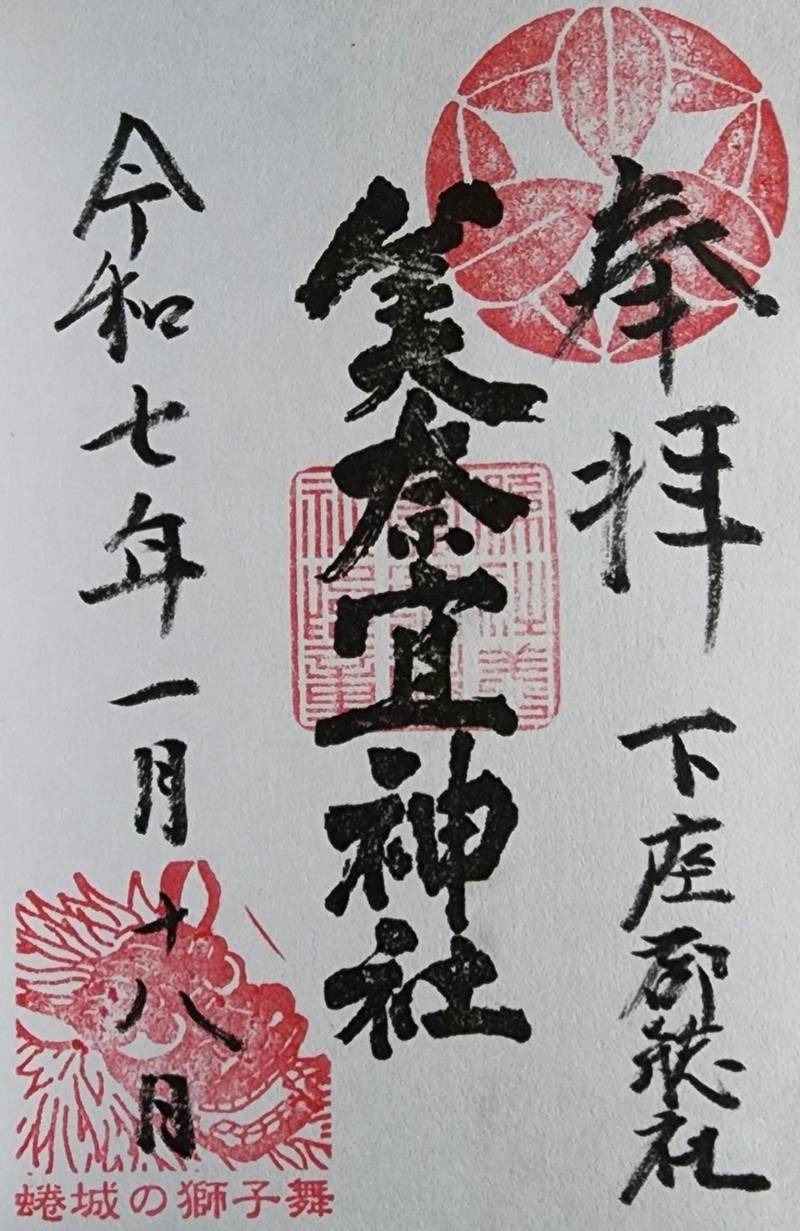 奉拝
下座郡惣社
美奈宜神社
令和七年一月十八日
蜷城の獅子舞